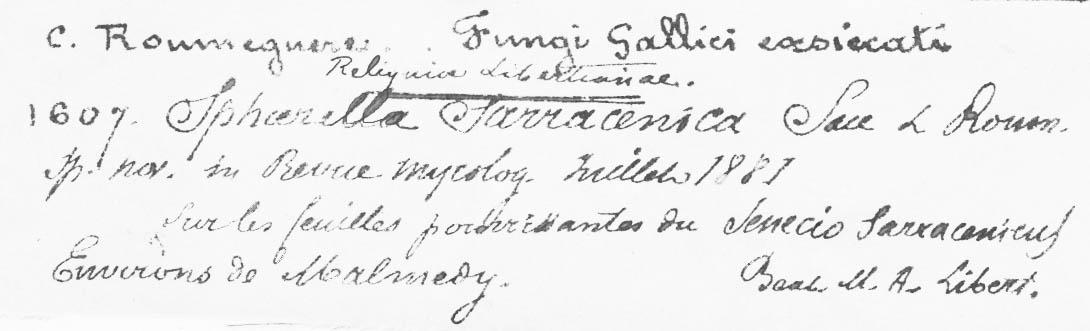 C. Roumeguere. . Fungi Gallici exsiccati
Reliquiæ Libertianae.
1607. Sphærella Sarracenica Sacc & Roum.
sp. nov. in Revue Mycolog. Juillet 1881
Sur les feuilles pourrissantes du Senecio Sarracenicus
Environs de Malmedy. M. A. Libert.